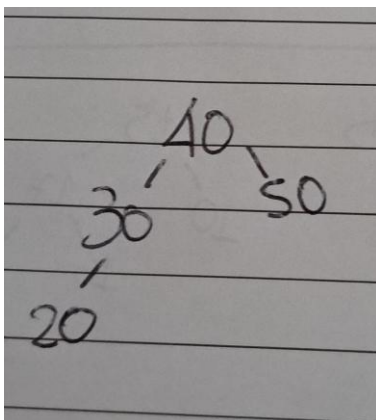 40
30 50
20